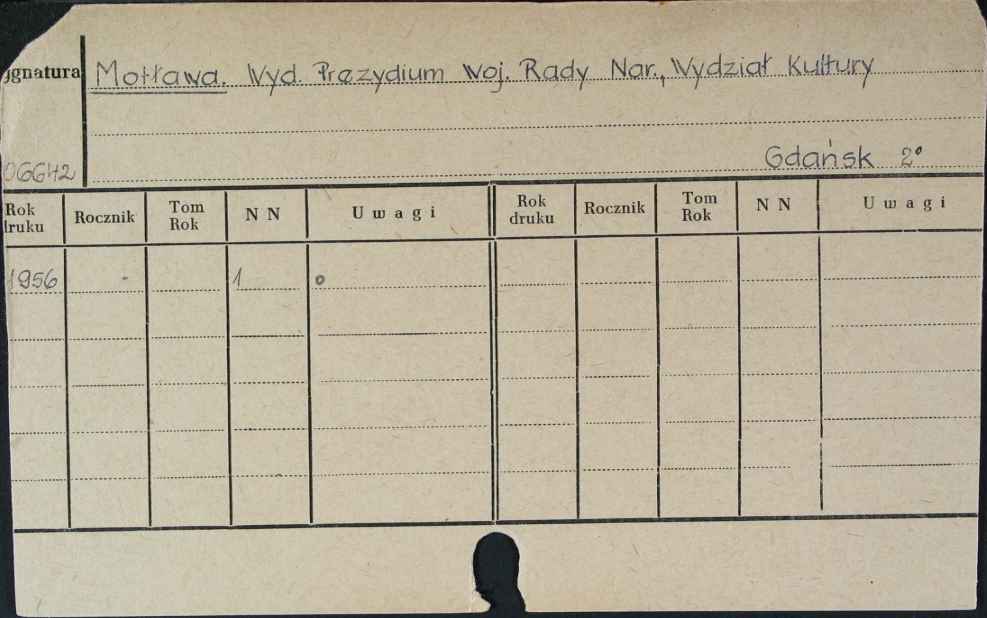 ygnatura Motława. Wyd. Prezydium Woj. Rady Nar., Wydział Kultury
06642 Gdańsk 2°
Rok druku Rocznik Tom Rok N N U w a g i Rok druku Rocznik Tom Rok N N U w a g i
1956 - 1 o